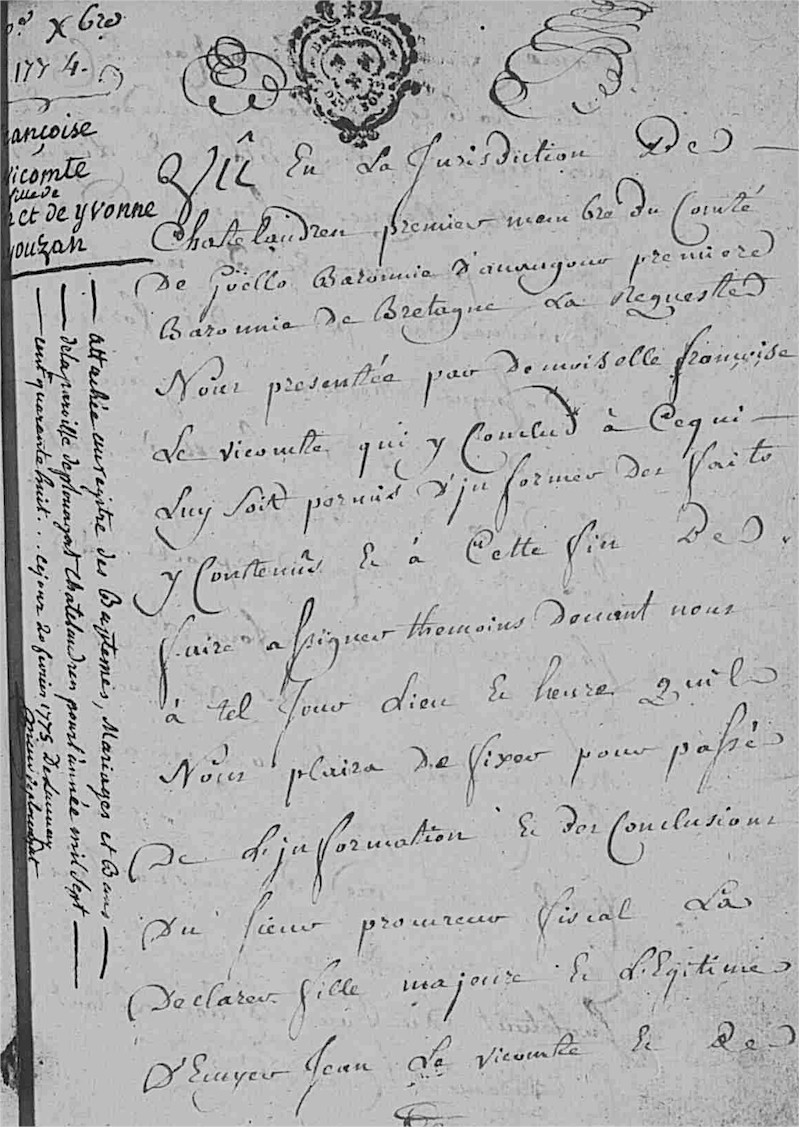 Xbre
1774.
ançoise
vicomte
fille de
et de yvonne
ouzan
BRETAGNE
DE SOLS
Vû En La Jurisdiction De
Chatelaudren premier membre Du Comté
De Goëllo Baronnie D'avaugour premiere
Baronnie de Bretagne La Requeste
Nous presentée par Demoiselle françoise
Le vicomte qui y Conclud à Cequi
Luy soit permis D'jnformer des faits
y Contenus & à Cette fin De
faire assigner themoins Devant nous
à tel Jour Lieu & heure quil
Nous plaira De fixer pour passé
De L'jnformation & des Conclusions
Du sieur procureur fiscal La
Declarer fille majeure & LEgitime
D'Ecuyer Jean Le vicomte & De
attachée au registre des Baptemes, Mariages et Bans
de la paroisse de plouagat Chatelaudren pour l'année mil sept
cent quarante huit... ce jour 20 fevrier 1775. Delaunay